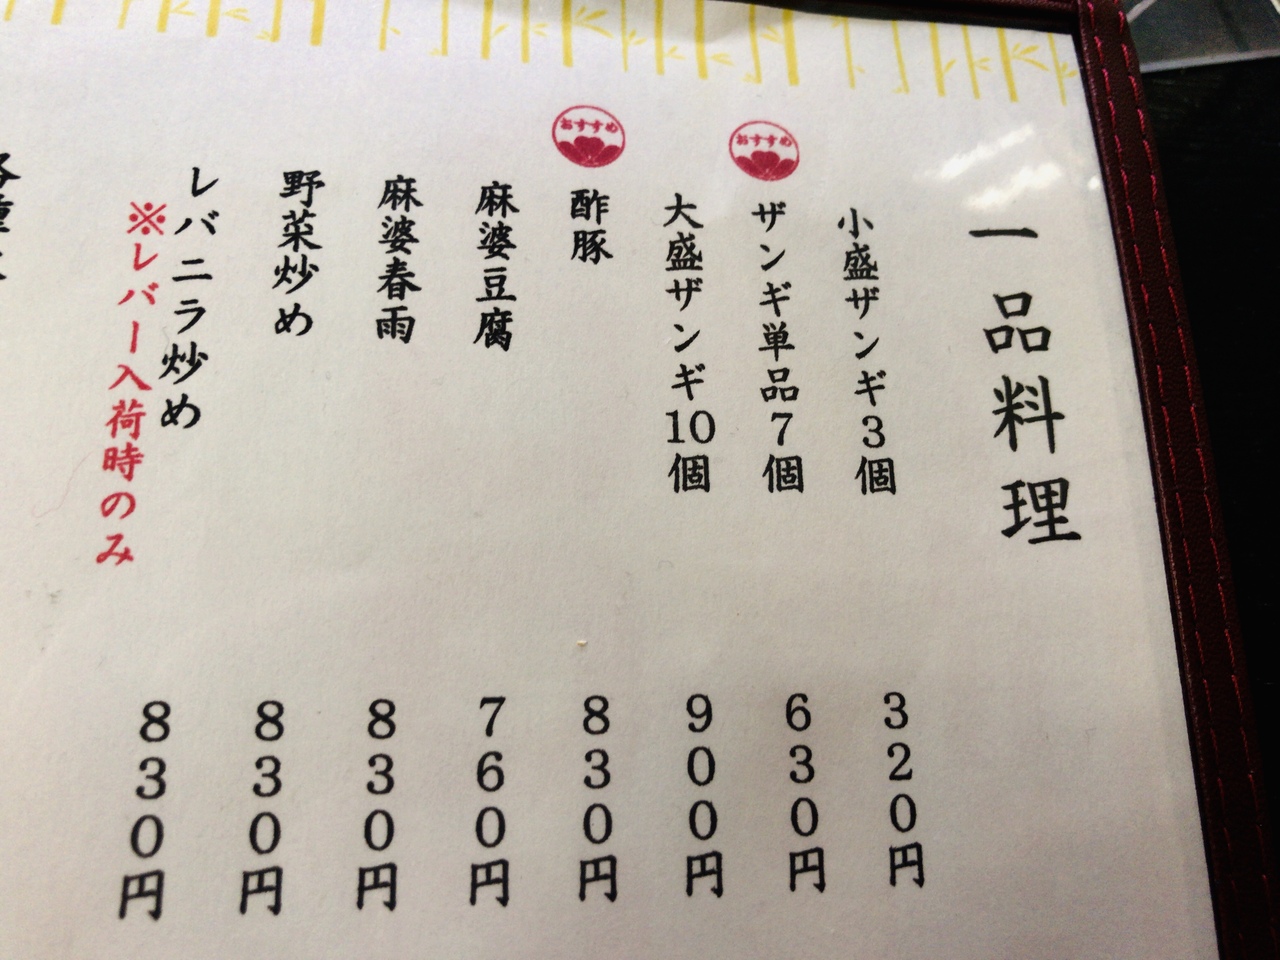 一品料理
小盛ザンギ3個
320円
おすすめ
ザンギ単品7個
630円
大盛ザンギ10個
900円
おすすめ
酢豚
830円
麻婆豆腐
760円
麻婆春雨
830円
野菜炒め
830円
レバニラ炒め
※レバー入荷時のみ
830円